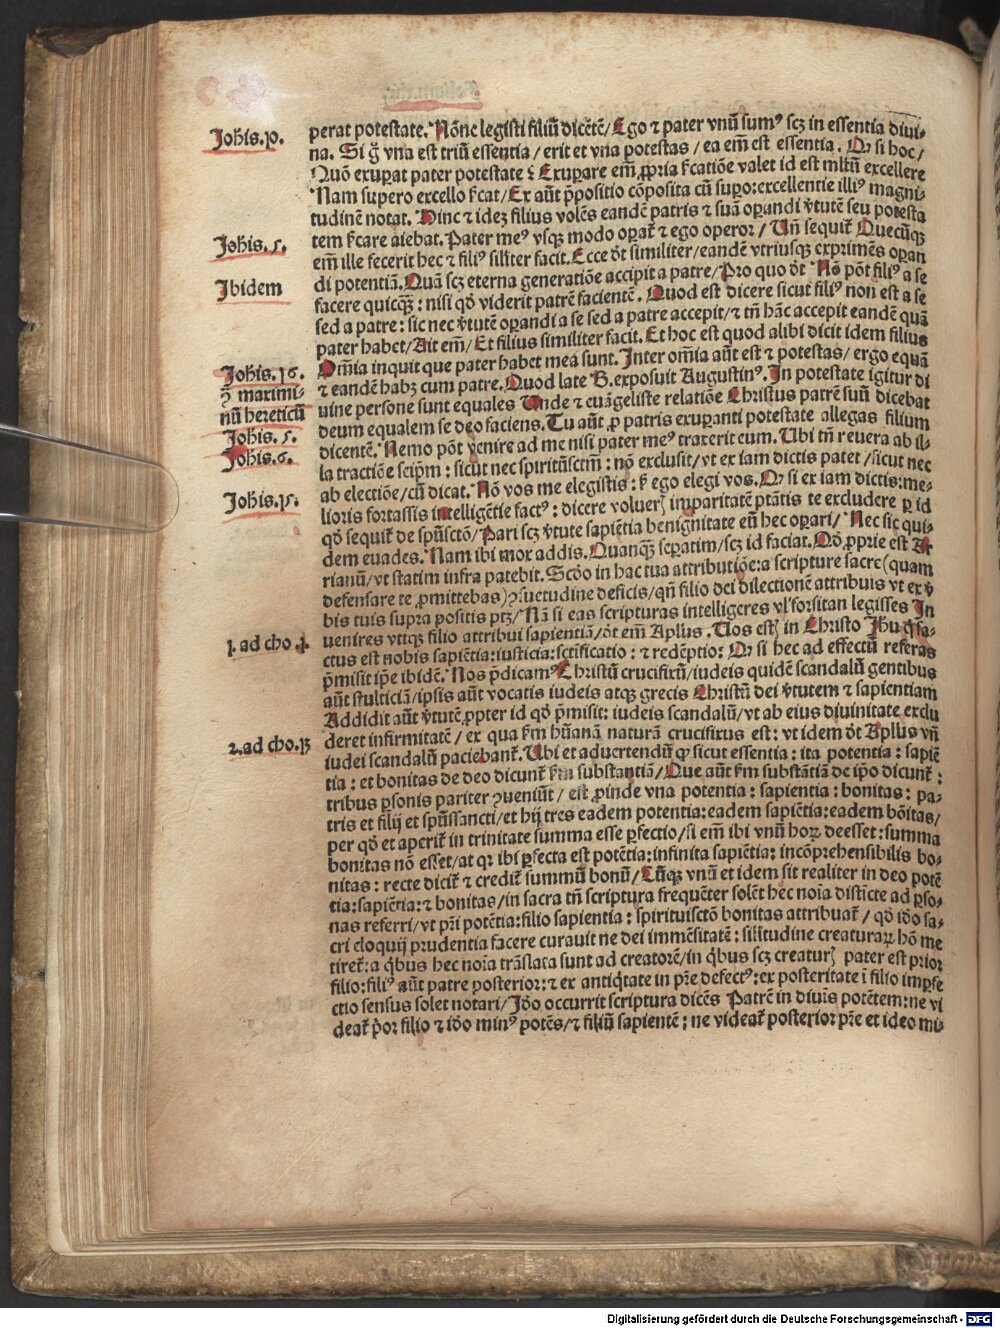 Johis.p.
Johis.5.
Ibidem
Johis.16.
ꝯ̃ maximi-
nū hereticū
Johis.5.
Johis.6.
Johis.15.
1. ad cho.1.
2. ad cho.13
perat potestate. Nōne legisti filiū dicētē/ Ego ⁊ pater vnū sumꝰ scꝫ in essentia diui-
na. Si g̃ vna est triū essentia/ erit et vna ꝑotestas/ ea em̄ est essentia. Qꝫ si hoc/
Quō exuꝑat pater potestate ⁊ Exuꝑare em̄ ꝓpria ſcatiōe valet id est mltū excellere
Nam supero excello ſcat/ Ex aūt ꝓ̄positio cōposita cū suꝑo: excellentie illiꝰ magni-
tudinē notat. Hinc ⁊ idez filius volēs eandē patris ⁊ suā oꝑandi v̄tutē seu potesta
tem ſcare aiebat. Pater meꝰ vsqꝫ modo oꝑat̄ ⁊ ego operor/ Vn̄ sequit̄ Quecūqꝫ
em̄ ille fecerit hec ⁊ filiꝰ silīter facit. Ecce ōt similiter/ eandē vtriusqꝫ exprimēs oꝑan
di potentiā. Quā scꝫ eterna generatiōe accipit a patre/ Pro quo ōt Nō pōt filiꝰ a se
facere quicqꝫ: nisi qd̄ viderit patrē facientē. Quod est dicere sicut filiꝰ non est a se
sed a patre: sic nec v̄tutē oꝑandi a se sed a patre accepit/ ⁊ tn̄ hāc accepit eandē quā
pater habet/ Ait em̄/ Et filius similiter facit. Et hoc est quod alibi dicit idem filius
Omīa inquit que pater habet mea sunt. Inter omīa aūt est ⁊ potestas/ ergo equā
⁊ eandē habꝫ cum patre. Quod late B. exposuit Augustinꝰ. In potestate igitur di
uine persone sunt equales Unde ⁊ euāgeliste relatiōe Christus patrē suū dicebat
deum equalem se deo faciens. Tu aūt ꝓ patris exuꝑanti potestate allegas filium
dicentē. Nemo pōt venire ad me nisi pater meꝰ traxerit eum. Ubi tn̄ reuera ab il-
la tractiōe seipm̄: sicut nec spiritūsctm̄: nō exclusit/ vt ex iam dictis patet/ sicut nec
ab electiōe/ cū dicat. Nō vos me elegistis: ſ ego elegi vos. Qꝫ si ex iam dictis: me-
lioris fortassis intelligētie factꝰ: dicere volueꝭ imparitatē ptātis te excludere ꝑ id
qd̄ sequit̄ de spūsctō/ Pari scꝫ v̄tute sapiētia benignitate eū hec oꝑari/ Nec sic qui-
dem euades. Nam ibi mox addis. Quanqꝫ seꝑatim/ scꝫ id faciat. Qd̄ ꝓprie est Ar
rianū/ vt statim infra patebit. Scd̄o in hac tua attributiōe: a scripture sacre (quam
defensare te ꝓmittebas) ꝯsuetudine deficis/ qn̄ filio dei dilectionē attribuis vt ex v̄
bis tuis supra positis ptꝫ/ Nā si eas scripturas intelligeres vl̓ forsitan legisses In
uenires vtiqꝫ filio attribui sapientiā/ ōt em̄ Apl̄us. Uos estꝭ in Christo Ihū q̇ fa-
ctus est nobis sapiētia: iusticia: sctificatio: ⁊ redēptio: Qꝫ si hec ad effectū referas
p̄misit ip̄e ibidē. Nos p̄dicamꝰ Christū crucifixū/ iudeis quidē scandalū gentibus
aūt stulticiā/ ipsis aūt vocatis iudeis atqꝫ grecis Christū dei v̄tutem ⁊ sapientiam
Addidit aūt v̄tutē ꝓpter id qd̄ p̄misit: iudeis scandalū/ vt ab eius diuinitate exclu
deret infirmitatē/ ex qua ſm hūanā naturā crucifixus est: vt idem ōt Apl̄us vn̄
iudei scandalū paciebant̄. Ubi et aduertendū ꝙ sicut essentia: ita potentia: sapiē
tia: et bonitas de deo dicunt̄ ſm substantiā/ Que aūt ſm substātiā de ip̄o dicunt̄:
tribus ꝑsonis pariter ꝯueniūt/ est ꝓinde vna potentia: sapientia: bonitas: pa-
tris et filij et spūssancti/ et hij tres eadem potentia: eadem sapiētia: eadem bōitas/
per qd̄ et aperit̄ in trinitate summa esse ꝑfectio/ si em̄ ibi vnū hoꝝ deesset: summa
bonitas nō esset/ at qꝛ ibi ꝑfecta est potētia: infinita sapiētia: incōprehensibilis bo-
nitas: recte dicit̄ ⁊ credit̄ summū bonū/ Cūqꝫ vnū et idem sit realiter in deo potē
tia: sapiētia: ⁊ bonitas/ in sacra tn̄ scriptura frequēter solēt hec noīa disticte ad ꝑso-
nas referri/ vt pr̄i potētia: filio sapientia: spirituisctō bonitas attribuat̄/ qd̄ id̄o sa-
cri eloquij prudentia facere curauit ne dei immēsitatē: silītudine creaturaꝝ hō me
tiret̄: a q̇bus hec noīa trāslata sunt ad creatorē/ in q̇bus scꝫ creaturꝭ pater est prior
filio: filiꝰ aūt patre posterior: ⁊ ex antiq̇tate in pr̄e defectꝰ: ex posteritate ī filio imꝑfe
ctio sensus solet notari/ Id̄o occurrit scriptura dicēs Patrē in diuīs potētem: ne vi
deat̄ p̄or filio ⁊ id̄o minꝰ potēs/ ⁊ filiū sapientē: ne videat̄ posterior pr̄e et ideo mi-
Digitalisierung gefördert durch die Deutsche Forschungsgemeinschaft - DFG